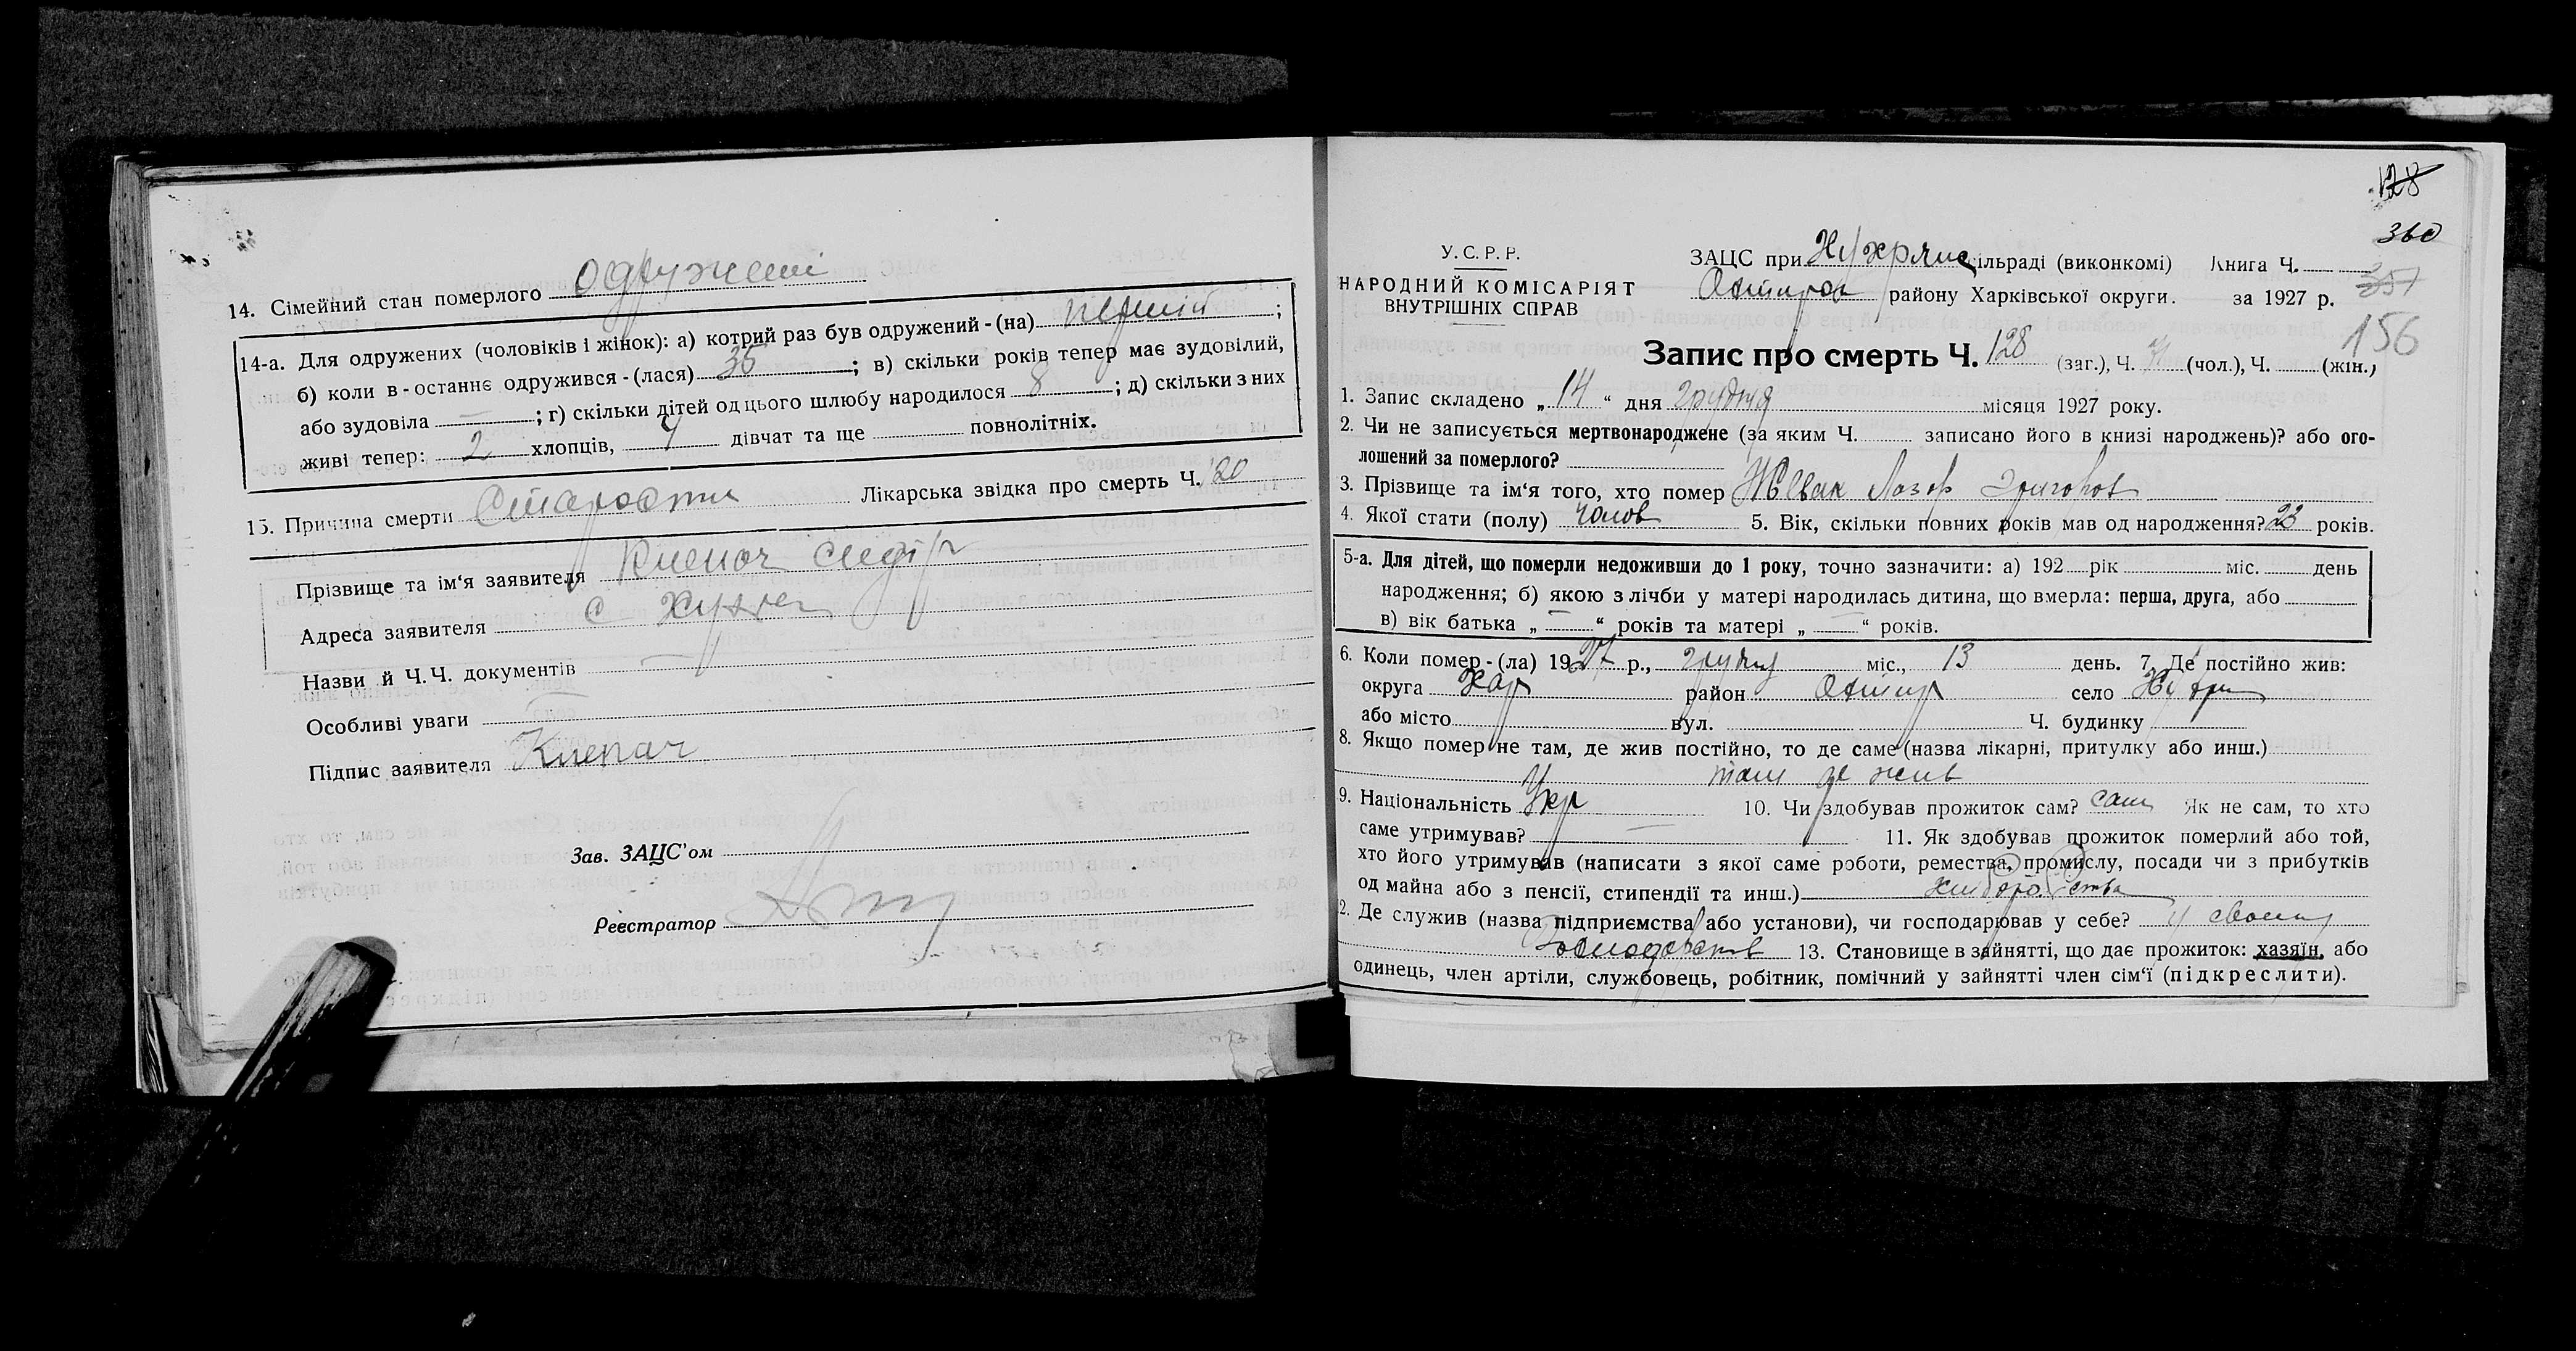 14. Сімейний стан померлого одружені
14-а. Для одружених (чоловіків і жінок): а) котрий раз був одружений - (на) перший ;
б) коли в - останнє одружився - (лася) 35 ; в) скільки років тепер має зудовілий,
або зудовіла — ; г) скільки дітей од цього шлюбу народилося 8 ; д) скільки з них
живі тепер: 2 хлопців, 4 дівчат та ще повнолітніх.
15. Причина смерти Старости Лікарська звідка про смерть Ч. 120
Прізвище та ім'я заявителя Клепач Сидір
Адреса заявителя с
Назви й Ч. Ч. документів —
Особливі уваги —
Підпис заявителя Клепач
Зав. ЗАЦС'ом
Реєстратор
128
360
У. С. Р. Р.
НАРОДНИЙ КОМІСАРІЯТ
ВНУТРІШНІХ СПРАВ
ЗАЦС при сільраді (виконкомі) Книга Ч.
району Харківської округи. за 1927 р. 357
156
Запис про смерть Ч. 128 (заг.), Ч. (чол.), Ч. (жін.)
1. Запис складено „ 14 “ дня грудня місяця 1927 року.
2. Чи не записується мертвонароджене (за яким Ч. записано його в книзі народжень)? або ого-
лошений за померлого?
3. Прізвище та ім'я того, хто помер Лазор Григоров
4. Якої стати (полу) чолов 5. Вік, скільки повних років мав од народження? 23 років.
5-а. Для дітей, що померли недоживши до 1 року, точно зазначити: а) 192 рік міс. день
народження; б) якою з лічби у матері народилась дитина, що вмерла: перша, друга, або
в) вік батька „ — “ років та матері „ — “ років.
6. Коли помер - (ла) 1927 р., грудня міс., 13 день. 7. Де постійно жив:
округа Хар район село
або місто вул. Ч. будинку
8. Якщо помер не там, де жив постійно, то де саме (назва лікарні, притулку або инш.)
там де жив
9. Національність Укр 10. Чи здобував прожиток сам? сам Як не сам, то хто
саме утримував? — 11. Як здобував прожиток померлий або той,
хто його утримував (написати з якої саме роботи, ремества, промислу, посади чи з прибутків
од майна або з пенсії, стипендії та инш.)
2. Де служив (назва підприємства або установи), чи господарював у себе? у своему
13. Становище в зайнятті, що дає прожиток: хазяїн, або
одинець, член артіли, службовець, робітник, помічний у зайнятті член сім'ї (підкреслити).